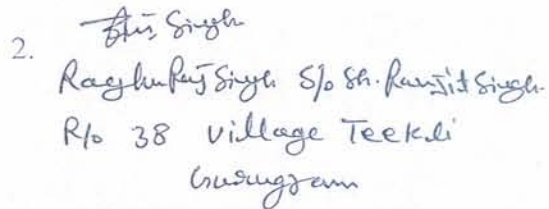 2. Singh
Raghu Raj Singh S/o Sh. Ranjit Singh.
R/o 38 Village Teekli
Gurugram